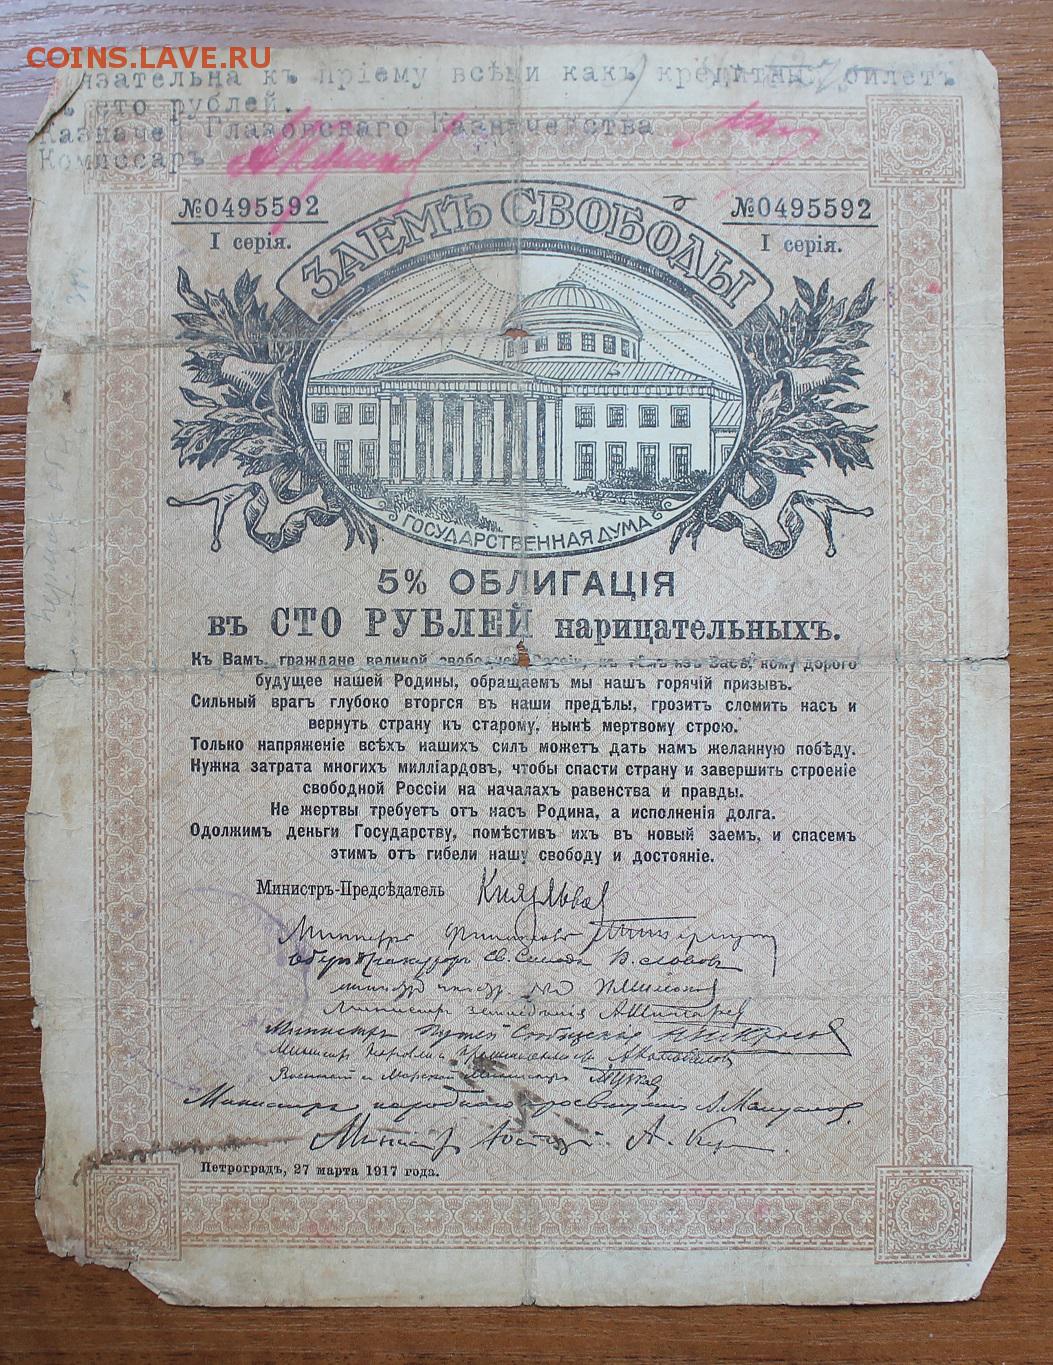 COINS.LAVE.RU
язательна къ пріему всѣми какъ кредитны билетъ
сто рублей.
Казначей Глазовскаго Казначейства
Комиссаръ
№0495592
№0495592
I серія.
I серія.
ЗАЕМЪ СВОБОДЫ
ГОСУДАРСТВЕННАЯ ДУМА
5% ОБЛИГАЦІЯ
въ СТО РУБЛЕЙ нарицательныхъ.
Къ Вамъ, граждане великой свободной Россіи, къ тѣмъ изъ Васъ, кому дорого
будущее нашей Родины, обращаемъ мы нашъ горячій призывъ.
Сильный врагъ глубоко вторгся въ наши предѣлы, грозитъ сломить насъ и
вернуть страну къ старому, нынѣ мертвому строю.
Только напряженіе всѣхъ нашихъ силъ можетъ дать намъ желанную побѣду.
Нужна затрата многихъ милліардовъ, чтобы спасти страну и завершить строеніе
свободной Россіи на началахъ равенства и правды.
Не жертвы требуетъ отъ насъ Родина, а исполненія долга.
Одолжимъ деньги Государству, помѣстивъ ихъ въ новый заемъ, и спасемъ
этимъ отъ гибели нашу свободу и достояніе.
Министръ-Предсѣдатель Князь Львов
Министръ финансовъ
Оберъ Прокуроръ Св. Синода В. Львовъ
П. Милюков
Министръ земледѣлія А. Шингарев
Министръ Путей Сообщенія Н. Некрасов
Министръ Торговли и Промышленности А. Коновалов
Военный и Морской Министръ А. Гучков
Министръ народного просвѣщенія А. Мануйлов
Министр юстиціи А. Кер
Петроградъ, 27 марта 1917 года.